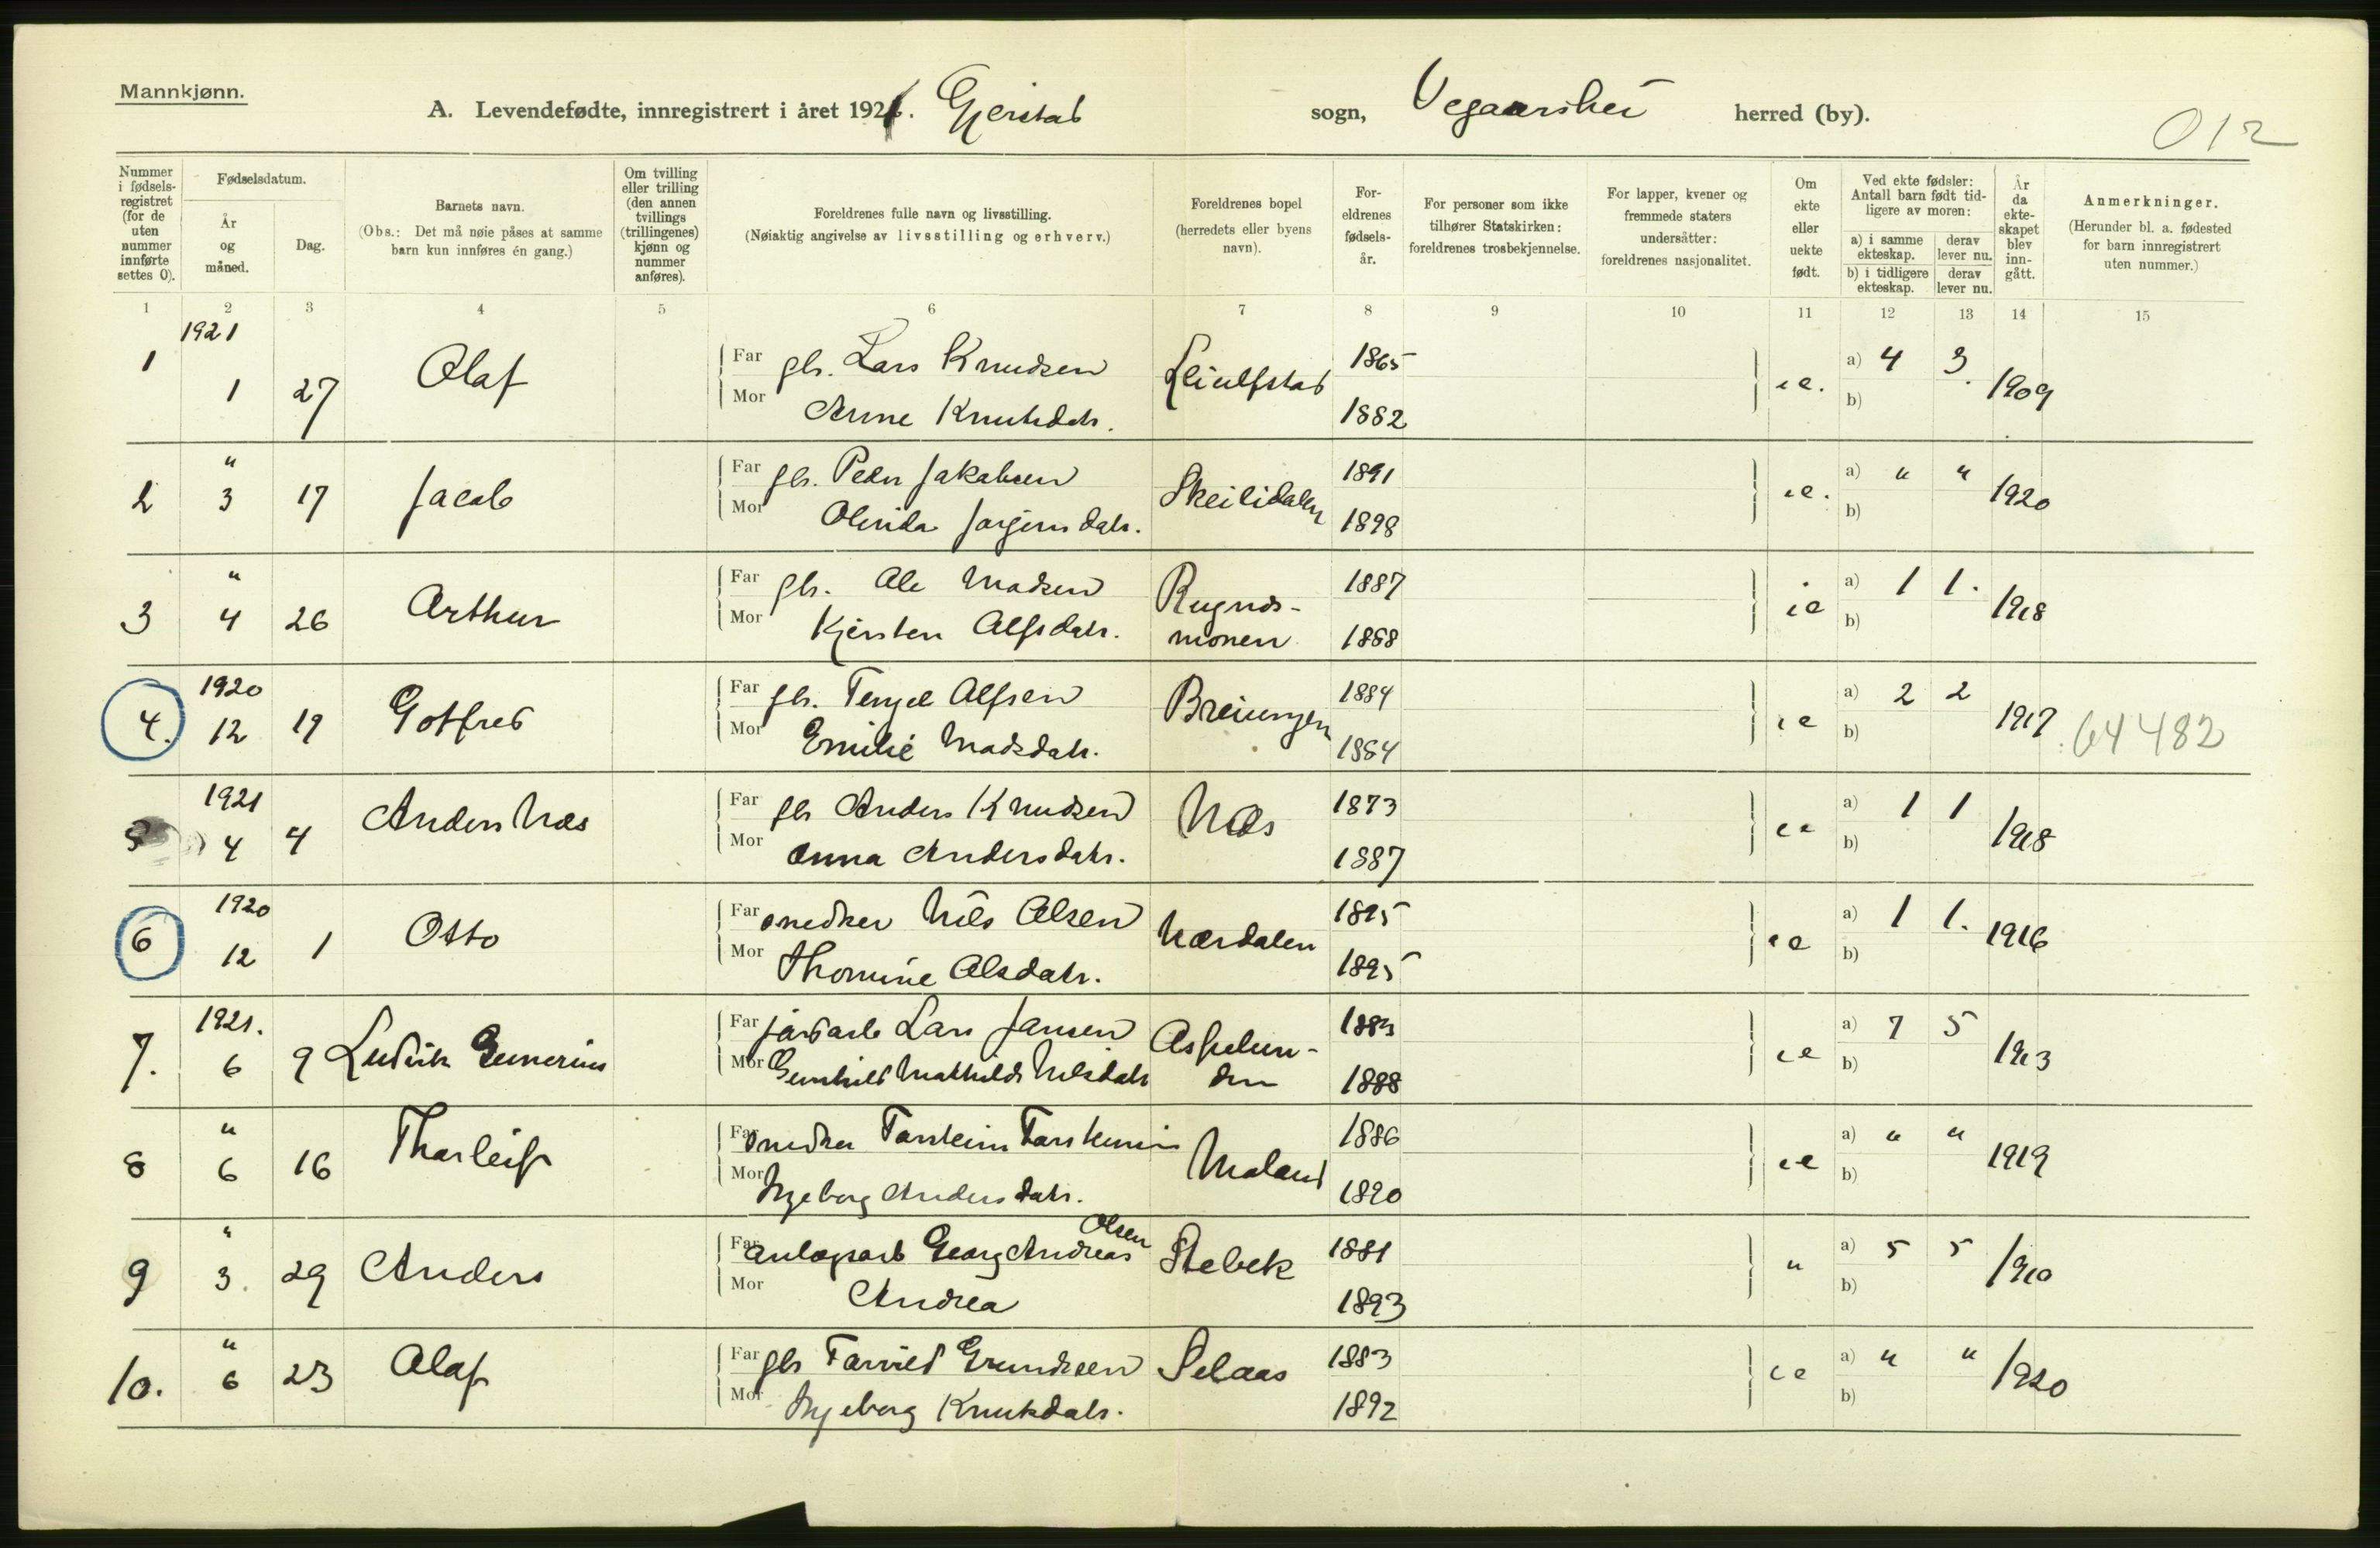 Mannkjønn.
A. Levendefødte, innregistrert i året 1921. Gjerstad sogn, Vegaarshei herred (by).
012
Nummer i fødsels-registret (for de uten nummer innførte settes 0).
Fødselsdatum.
År og måned.
Dag.
Barnets navn.
(Obs.: Det må nøie påses at samme barn kun innføres én gang.)
Om tvilling eller trilling (den annen tvillings (trillingenes) kjønn og nummer anføres).
Foreldrenes fulle navn og livsstilling.
(Nøiaktig angivelse av livsstilling og erhverv.)
Foreldrenes bopel (herredets eller byens navn).
For-eldrenes fødsels-år.
For personer som ikke tilhører Statskirken: foreldrenes trosbekjennelse.
For lapper, kvener og fremmede staters undersåtter: foreldrenes nasjonalitet.
Om ekte eller uekte født.
Ved ekte fødsler: Antall barn født tid-ligere av moren:
a) i samme ekteskap. derav lever nu.
b) i tidligere ekteskap. derav lever nu.
År da ekte-skapet blev inn-gått.
Anmerkninger.
(Herunder bl. a. fødested for barn innregistrert uten nummer.)
1 2 3 4 5 6 7 8 9 10 11 12 13 14 15
1921
1 1 27 Olaf Far gbr. Lars Knudsen 1865 a) 4 3 1909
Mor Anne Knutsdatr. 1882 b)
"
2 3 17 Jacob Far gbr. Peder Jakobsen Skeilidalen 1891 a) " " 1920
Mor Olerida Jørgensdatr. 1898 b)
"
3 4 26 Arthur Far gbr. Ole Madsen 1887 a) 1 1. 1918
Mor Kjersten Alfsdatr. monen 1888 b)
1920
4. 12 19 Gotfred Far gbr. Terjel Alfsen 1884 a) 2 2 1917 64482
Mor Emilie Madsdatr. 1884 b)
1921
5 4 4 Anders Næs Far gbr Anders Knudsen Næs 1873 a) 1 1 1918
Mor Anna Andersdatr. 1887 b)
1920
6 12 1 Otto Far snedker Nils Olsen Nærdalen 1895 a) 1 1. 1916
Mor Thomine Olsdatr. 1895 b)
1921.
7. 6 9 Ludvik Gunerius Far jordarb Lars Jansen 1883 a) 7 5 1913
Mor Gunhild Mathilde Nilsdatr 1888 b)
"
8 6 16 Thorleif Far snedker Torstein Torstensen 1886 a) " " 1919
Mor Ingeborg Andersdatr. Moland 1890 b)
"
9 3. 29 Anders Far anlægsarb Georg Andreas Olsen Stebek 1881 " a) 5 5 1910
Mor Andrea 1893 b)
"
10. 6 23 Olaf Far gbr Tarald Grundesen Selaas 1883 a) " " 1920
Mor Ingeborg Knutsdatr. 1892 b)